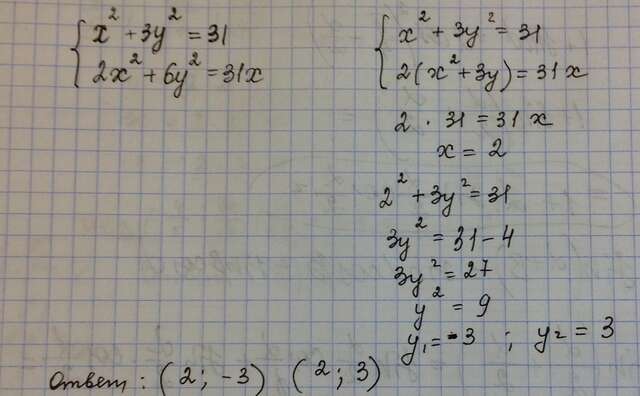 x² + 3y² = 31
2x² + 6y² = 31x
x² + 3y² = 31
2(x² + 3y) = 31x
2 · 31 = 31x
x = 2
2² + 3y² = 31
3y² = 31 - 4
3y² = 27
y² = 9
y₁ = -3 ; y₂ = 3
Ответ: (2; -3) (2; 3)